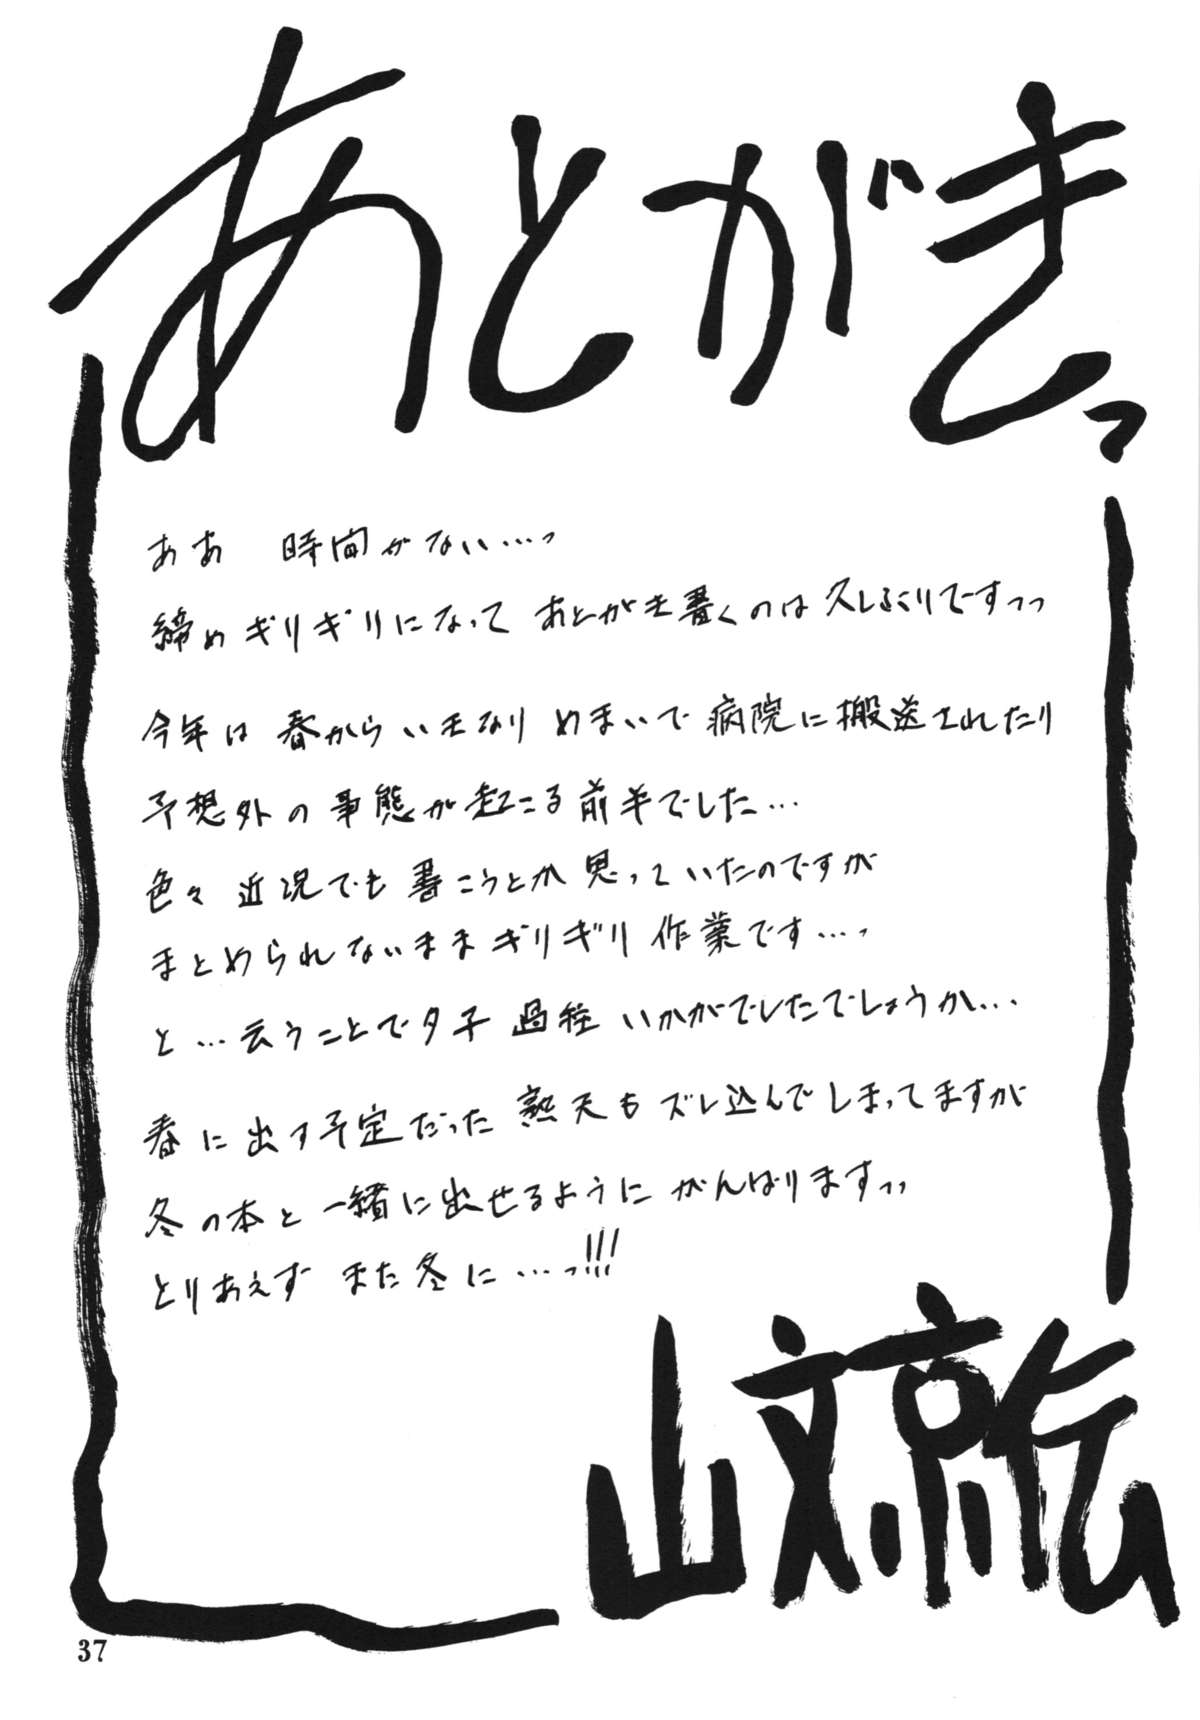 あとがきっ
ああ 時間がない…っ
締めギリギリになって あとがき書くのは 久しぶりですっっ
今年は 春から いきなり めまいで 病院に搬送されたり
予想外の 事態が起こる 前半でした…
色々 近況でも 書こうとか 思っていたのですが
まとめられないまま ギリギリ 作業です…っ
と…云うことで夕子 過程 いかがでしたでしょうか…
春に出す予定だった 熱天も ズレ込んでしまってますが
冬の本と 一緒に出せるように がんばりますっっ
とりあえず また冬に…っ!!!
山文京伝
37